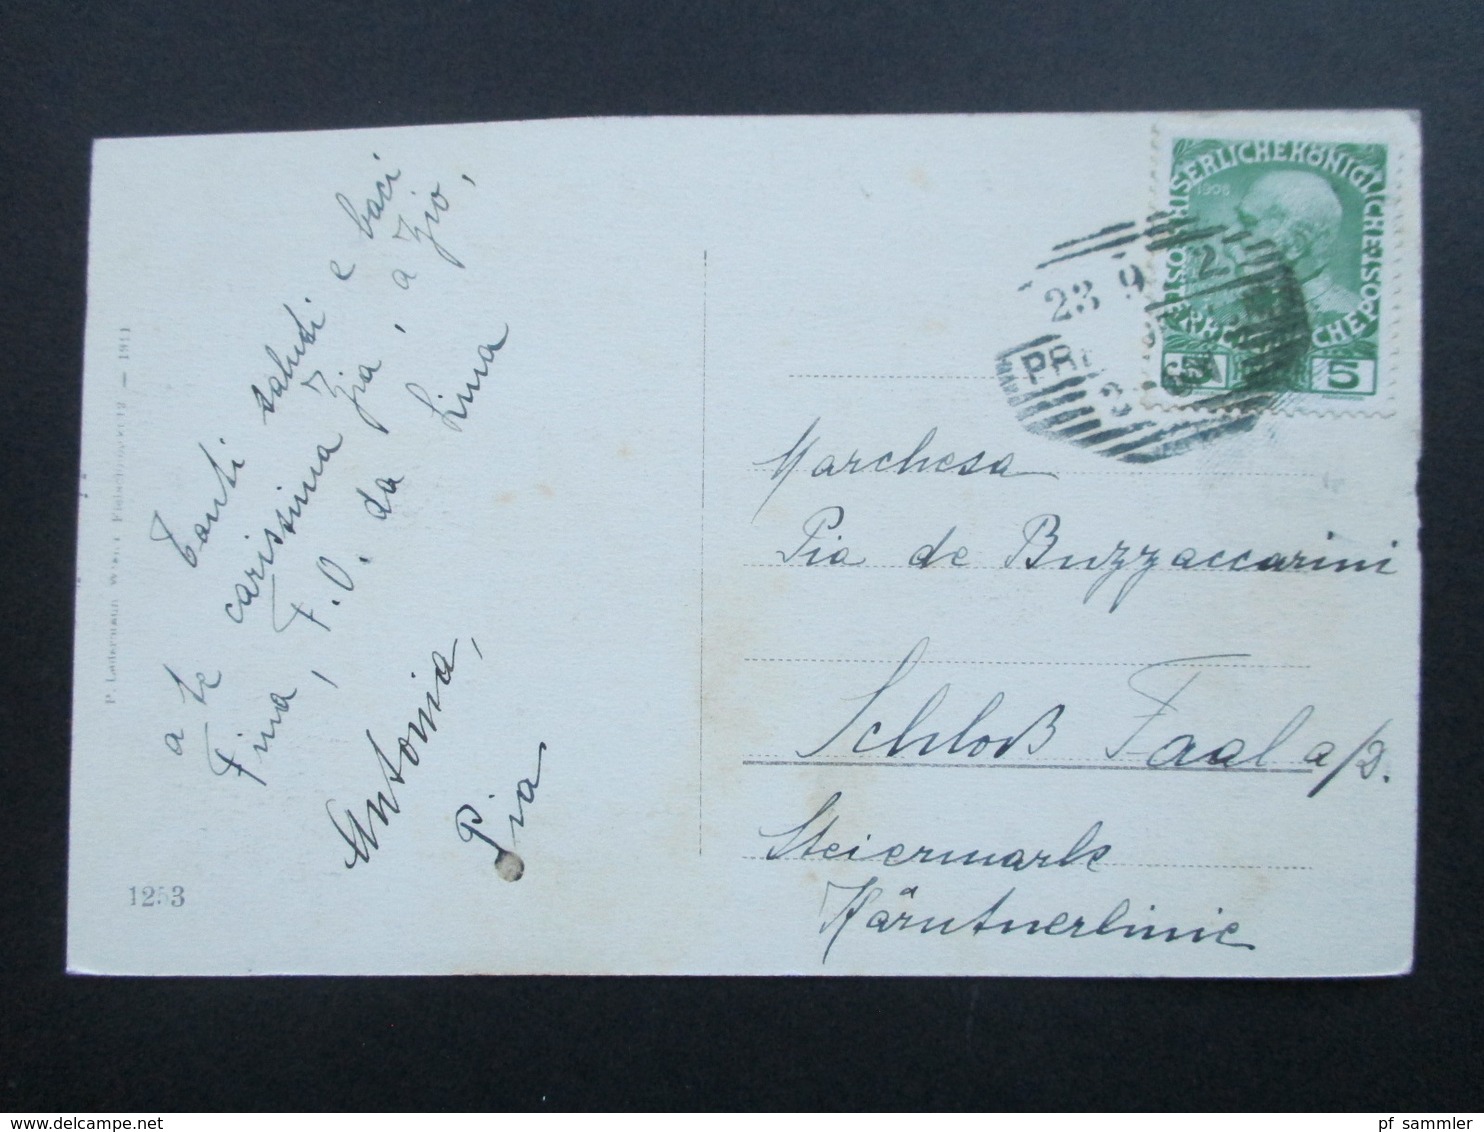 Tanti saluti e baci
a te carissima Zia, a Zio,
Fina, F. O. da Lina
Antonia,
Pia
P. Ledermann Wien I Fleischmarkt — 1911
1253
Marchesa
Pia de Buzzaccarini
Schloß Faal a/D.
Steiermark
Kärntnerlinie
1908
ÖSTERREICHISCHE POST KAISERLICHE KÖNIGLICHE
5 5
23 9 12
pf sammler